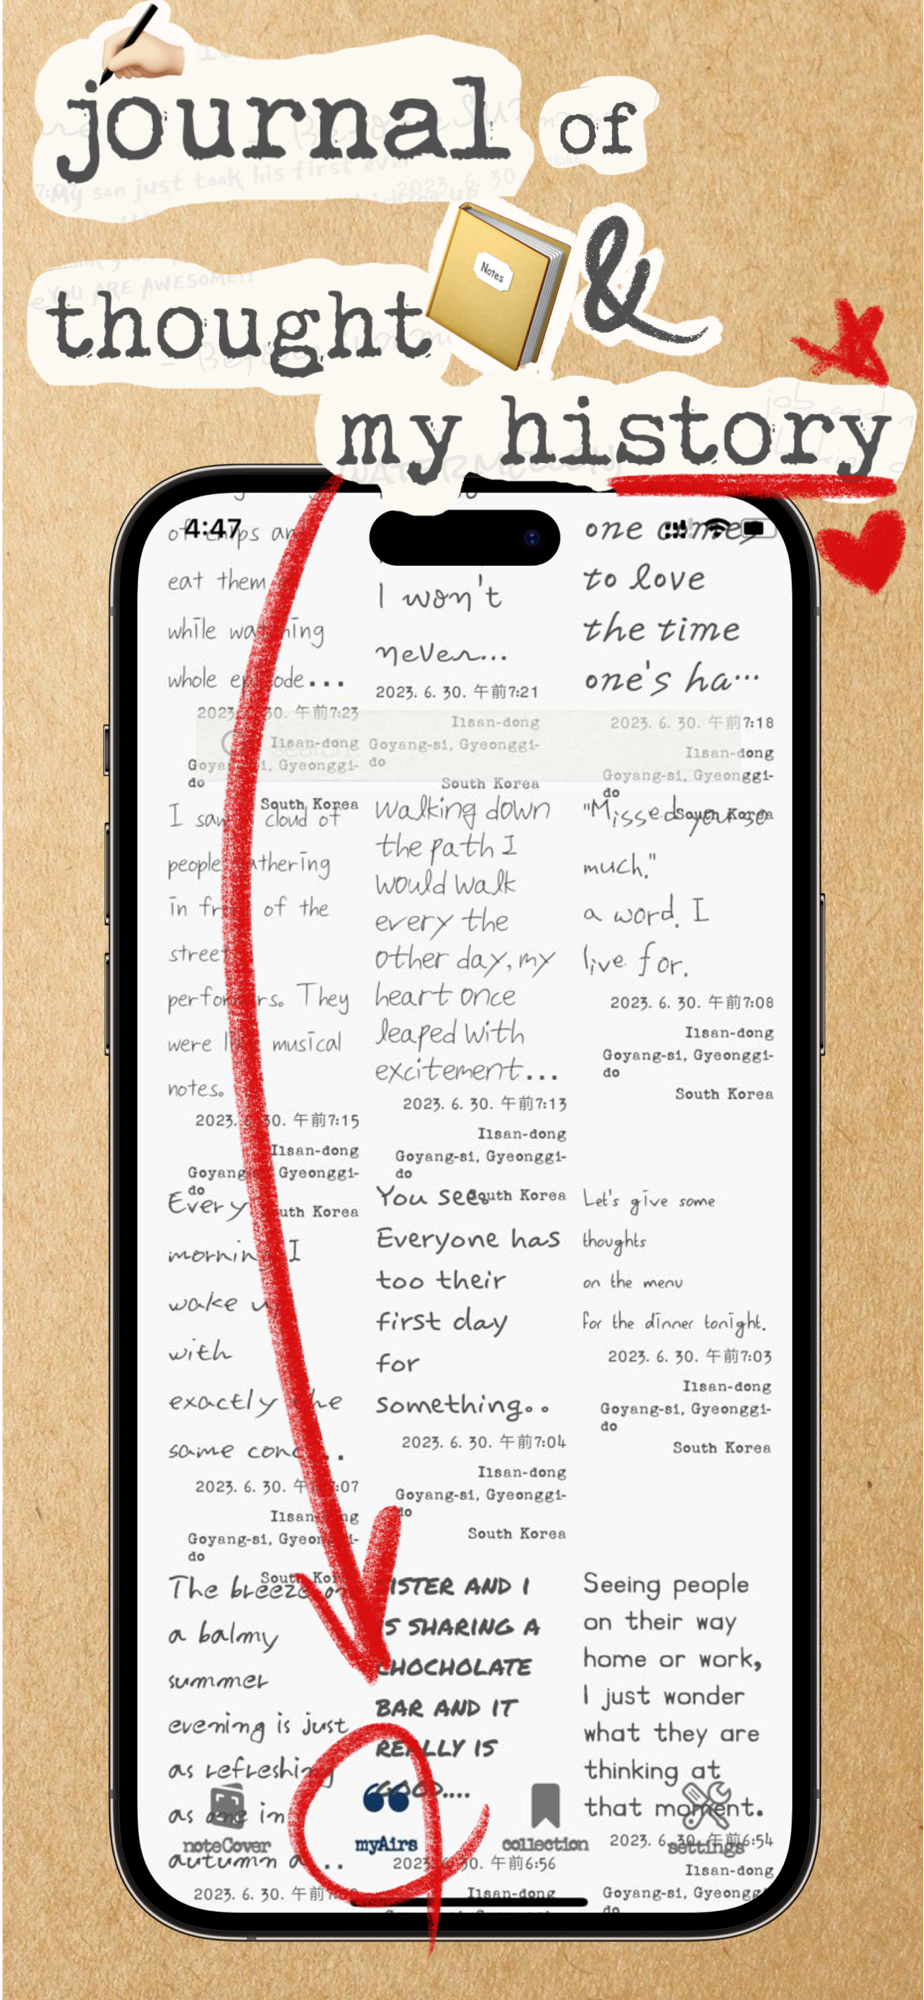 journal of
thought
Notes
&
my history
4:47
of chips an
eat them
while watching
whole episode...
2023. 6. 30. 午前7:23
Ilsan-dong
Goyang-si, Gyeonggi-
do
South Korea
I saw cloud of
people gathering
in front of the
street
performers. They
were musical
notes.
2023. 6. 30. 午前7:15
Ilsan-dong
Goyang-si, Gyeonggi-
do
South Korea
Every
morning I
wake up
with
exactly the
same conc...
2023. 6. 30. 午前7:07
Ilsan-dong
Goyang-si, Gyeonggi-
do
South Korea
The breeze on
a balmy
summer
evening is just
as refreshing
as one in
autumn a...
2023. 6. 30. 午前
I won't
never...
2023. 6. 30. 午前7:21
Ilsan-dong
Goyang-si, Gyeonggi-
do
South Korea
walking down
the path I
would walk
every the
other day, my
heart once
leaped with
excitement...
2023. 6. 30. 午前7:13
Ilsan-dong
Goyang-si, Gyeonggi-
do
South Korea
You see.
Everyone has
too their
first day
for
something..
2023. 6. 30. 午前7:04
Ilsan-dong
Goyang-si, Gyeonggi-
do
South Korea
SISTER AND I
IS SHARING A
CHOCHOLATE
BAR AND IT
REALLY IS
GOOD....
2023. 6. 30. 午前6:56
Ilsan-dong
one comes
to love
the time
one's ha...
2023. 6. 30. 午前7:18
Ilsan-dong
Goyang-si, Gyeonggi-
do
South Korea
"Missed you so
much."
a word. I
live for.
2023. 6. 30. 午前7:08
Ilsan-dong
Goyang-si, Gyeonggi-
do
South Korea
Let's give some
thoughts
on the menu
for the dinner tonight.
2023. 6. 30. 午前7:03
Ilsan-dong
Goyang-si, Gyeonggi-
do
South Korea
Seeing people
on their way
home or work,
I just wonder
what they are
thinking at
that moment.
2023. 6. 30. 午前6:54
Ilsan-dong
Goyang-si, Gyeongg
do
noteCover
myAirs
collection
settings